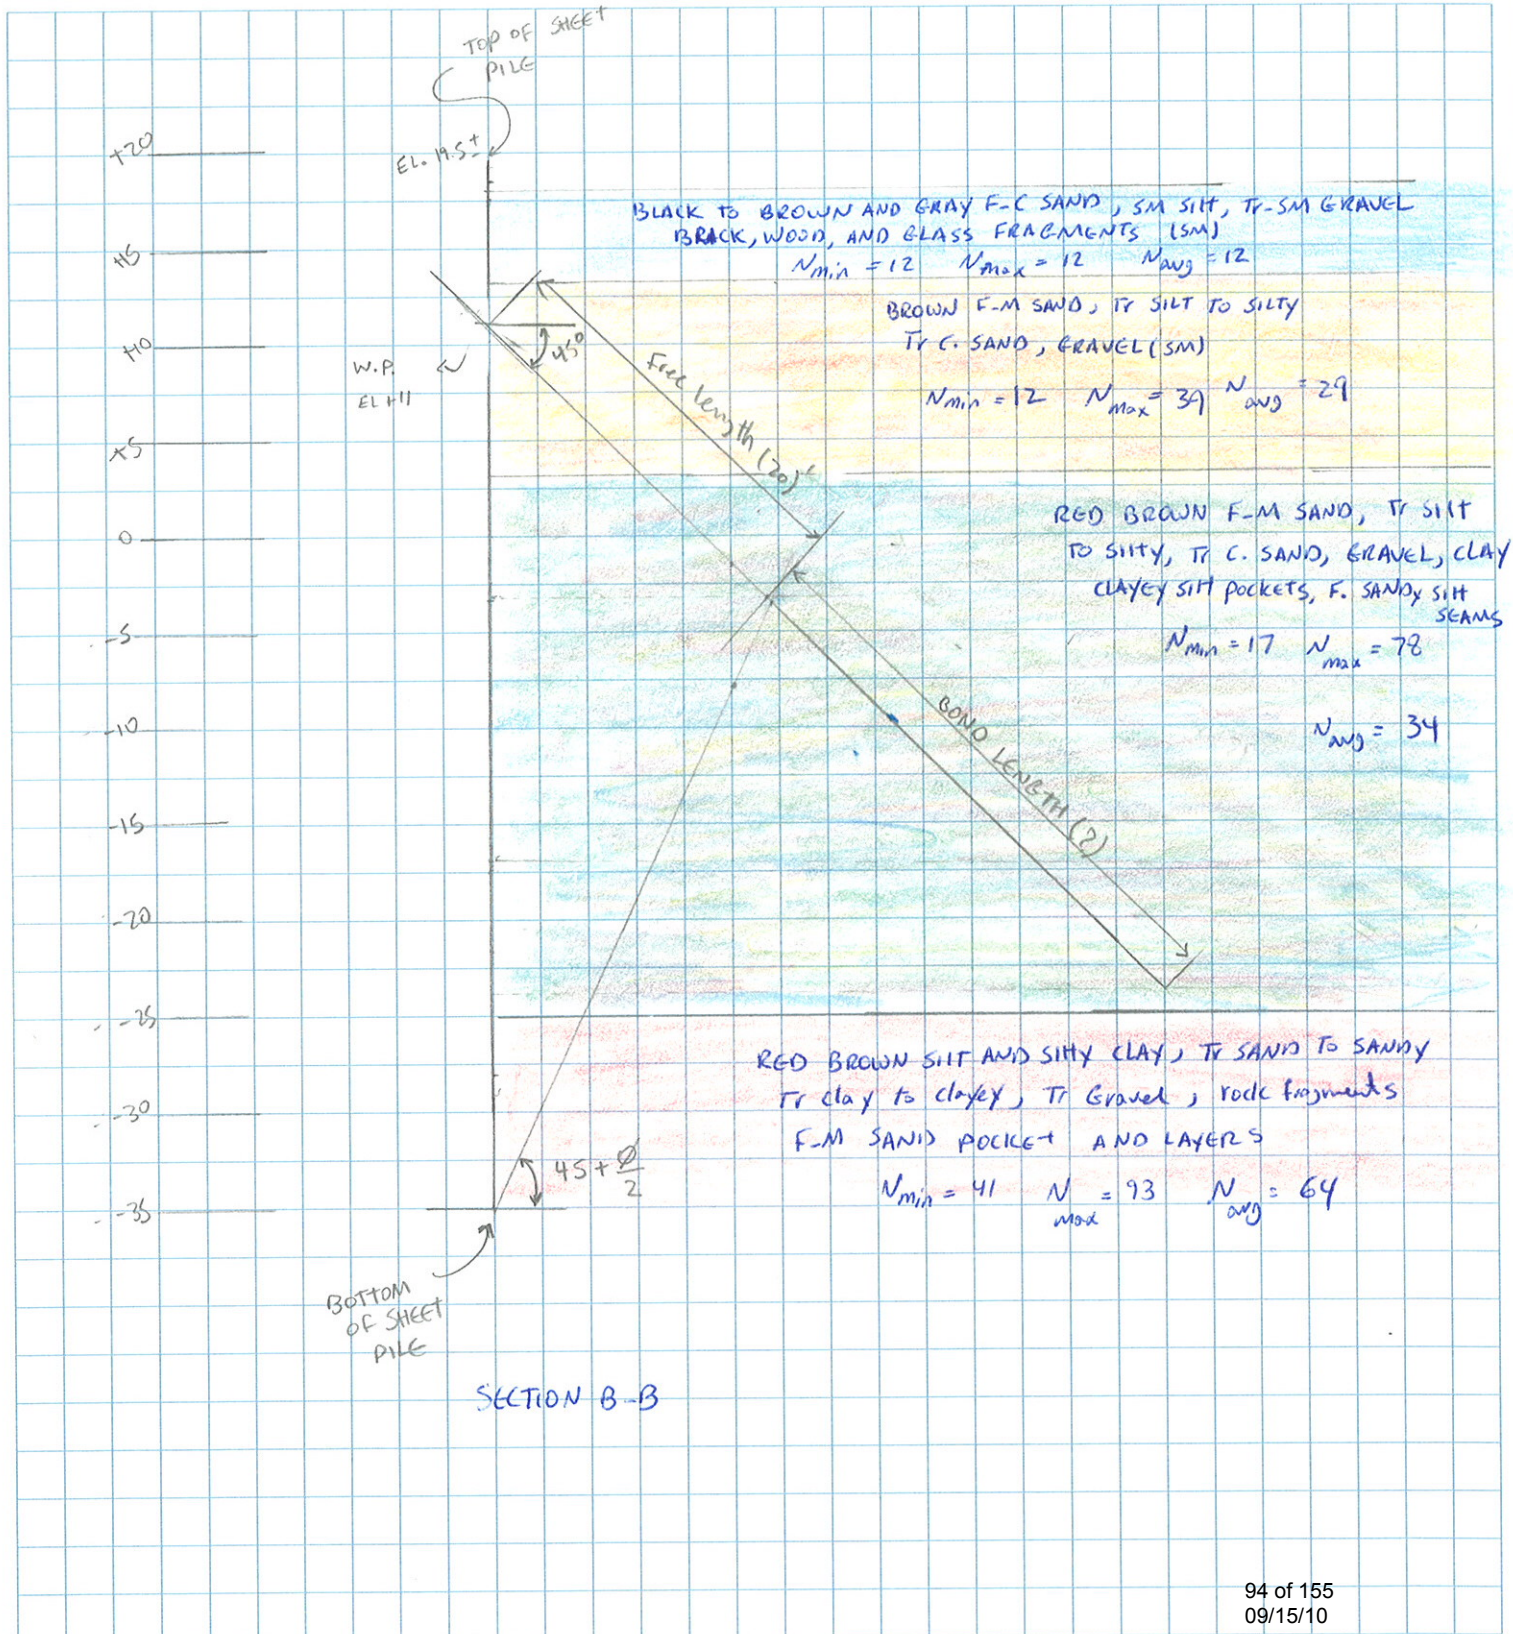 TOP OF SHEET
PILE
EL. 19.5±
+20
+15
+10
+5
0
-5
-10
-15
-20
-25
-30
-35
BLACK TO BROWN AND GRAY F-C SAND, SM SILT, Tr-SM GRAVEL
BRICK, WOOD, AND GLASS FRAGMENTS (SM)
Nmin = 12 Nmax = 12 Navg = 12
BROWN F-M SAND, Tr SILT TO SILTY
Tr C. SAND, GRAVEL (SM)
Nmin = 12 Nmax = 39 Navg = 29
W.P.
EL +11
45°
Free length (20)'
RED BROWN F-M SAND, Tr SILT
TO SILTY, Tr C. SAND, GRAVEL, CLAY
CLAYEY SILT POCKETS, F. SANDY SILT
SEAMS
Nmin = 17 Nmax = 78
Navg = 34
BOND LENGTH (?)
RED BROWN SILT AND SILTY CLAY, Tr SAND TO SANDY
Tr clay to clayey, Tr Gravel, rock fragments
F-M SAND POCKET AND LAYERS
Nmin = 41 Nmax = 93 Navg = 64
45 + Ø/2
BOTTOM
OF SHEET
PILE
SECTION B-B
94 of 155
09/15/10